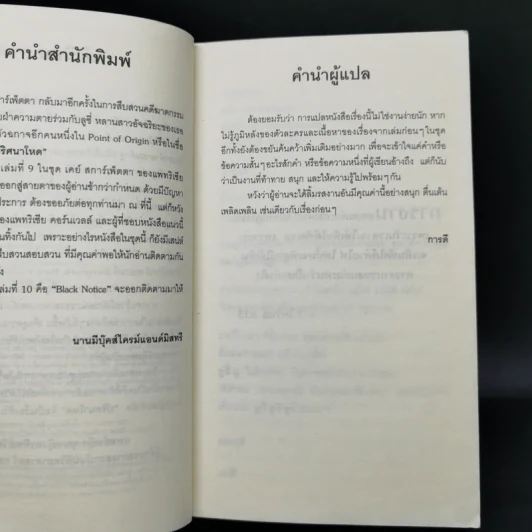 คำนำสำนักพิมพ์
าร์เพ็ตตา กลับมาอีกครั้งในการสืบสวนคดีฆาตกรรม
ฝ่าความตายร่วมกับลูซี่ หลานสาวอัจฉริยะของเธอ
ัวฉกาจอีกคนหนึ่งใน Point of Origin หรือในชื่อ
ริศนาโหด"
เล่มที่ 9 ในชุด เคย์ สการ์เพ็ตตา ของแพทริเซีย
ออกสู่สายตาของผู้อ่านช้ากว่ากำหนด ด้วยมีปัญหา
ประการ ต้องขออภัยต่อทุกท่านมา ณ ที่นี้ แต่ก็หวัง
ของแพทริเซีย คอร์นเวลล์ และผู้ที่ชอบหนังสือแนวนี้
นทิ้งกันไป เพราะอย่างไรหนังสือในชุดนี้ ก็ยังมีเสน่ห์
สืบสวนสอบสวน ที่มีคุณค่าพอให้นักอ่านติดตามกัน
ง
ล่มที่ 10 คือ "Black Notice" จะออกติดตามมาให้
นานมีบุ๊คส์ไครม์แอนด์มิสทรี
คำนำผู้แปล
ต้องยอมรับว่า การแปลหนังสือเรื่องนี้ไม่ใช่งานง่ายนัก หาก
ไม่รู้ภูมิหลังของตัวละครและเนื้อหาของเรื่องจากเล่มก่อนๆ ในชุด
อีกทั้งยังต้องขยันค้นคว้าเพิ่มเติมอย่างมาก เพื่อจะเข้าใจแค่คำหรือ
ข้อความสั้นๆ อะไรสักคำ หรือข้อความหนึ่งที่ผู้เขียนอ้างถึง แต่ก็นับ
ว่าเป็นงานที่ท้าทาย สนุก และให้ความรู้ไปพร้อมๆ กัน
หวังว่าผู้อ่านจะได้ลิ้มรสงานอันมีคุณค่านี้อย่างสนุก ตื่นเต้น
เพลิดเพลิน เช่นเดียวกับเรื่องก่อนๆ
การดี